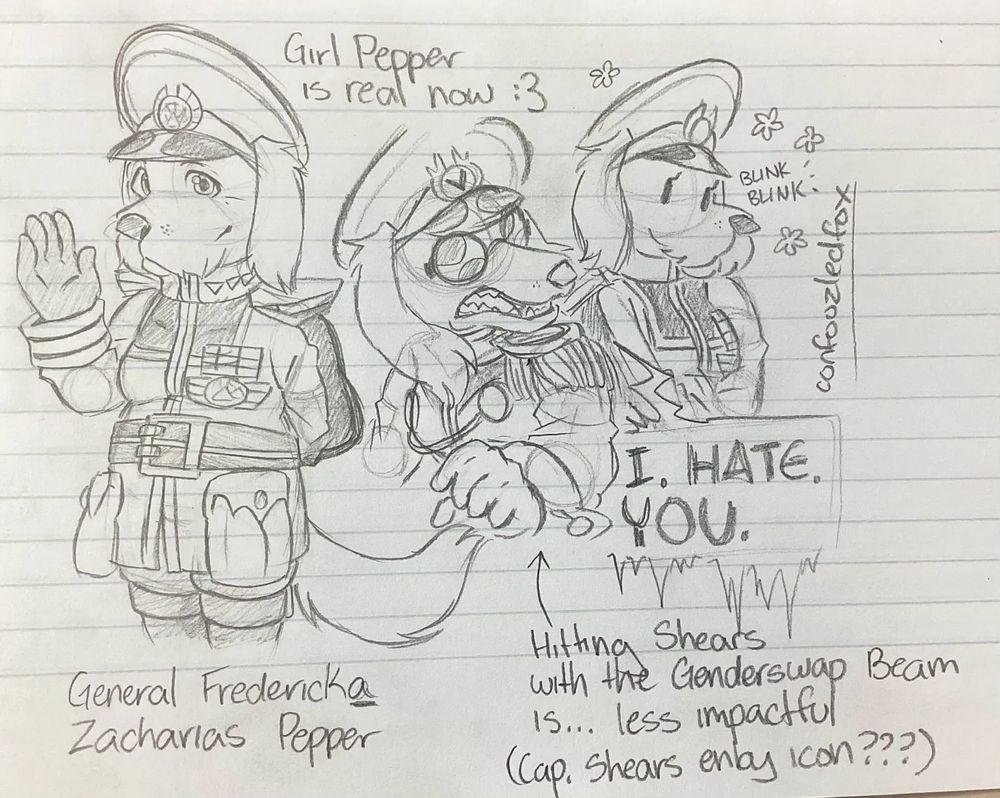 Girl Pepper
is real now :3
BLINK
BLINK
confouzledfox
I. HATE.
YOU.
Hitting Shears
with the Genderswap Beam
is... less impactful
(Cap. Shears enby icon???)
General Fredericka
Zacharias Pepper